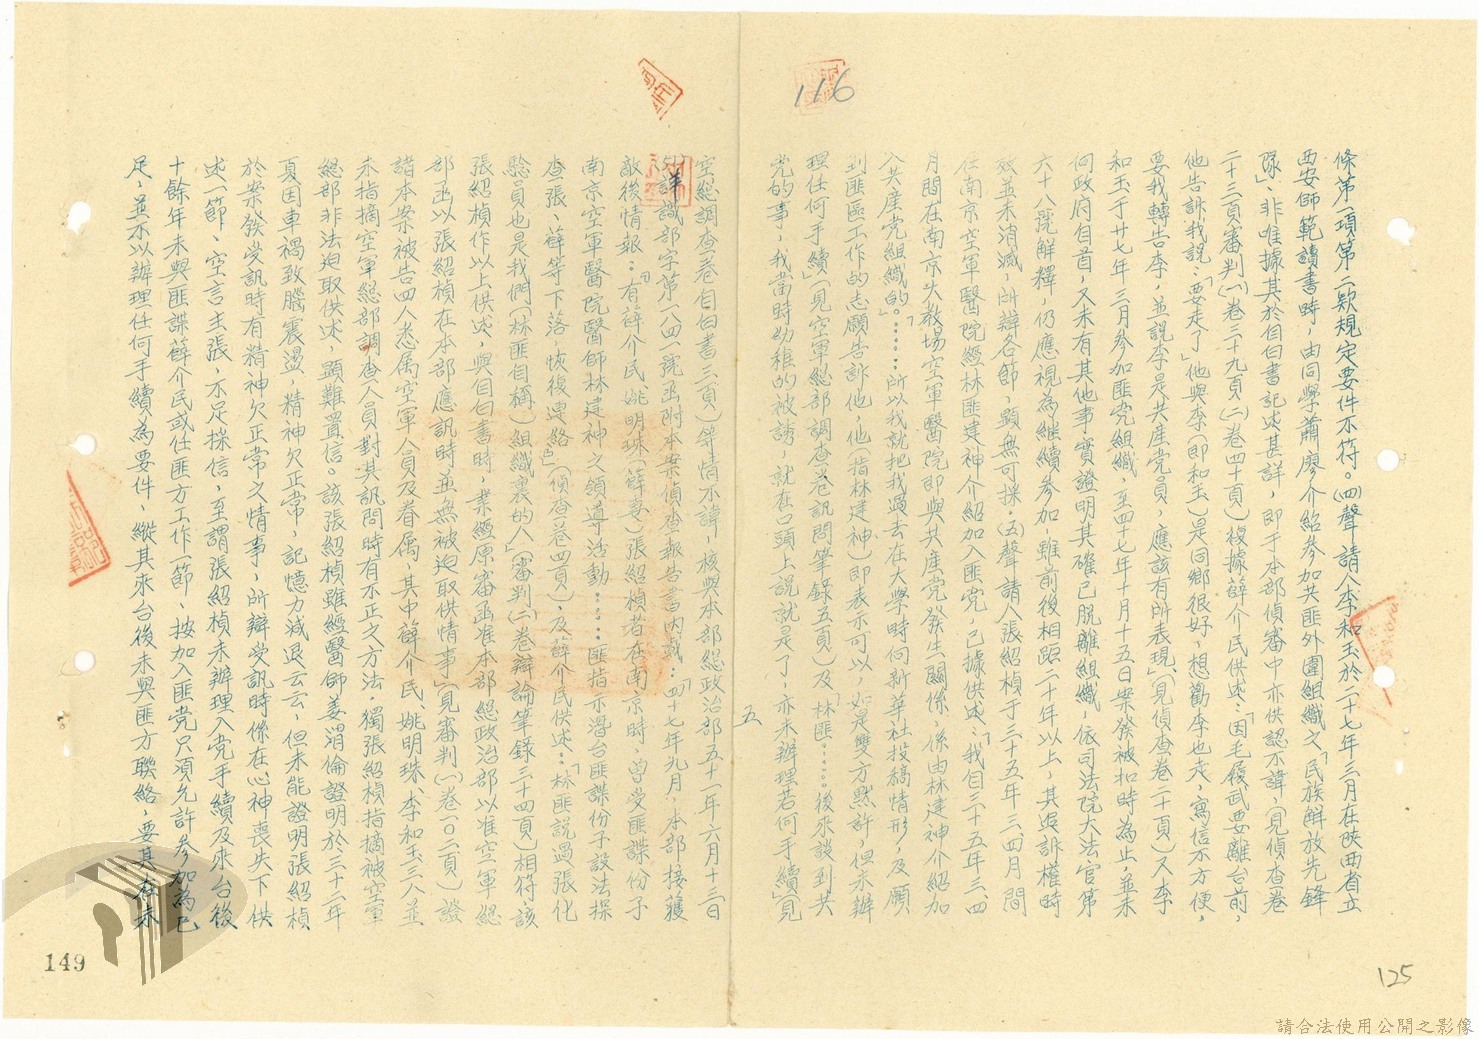 116
條第一項第二款規定要件不符。㈣聲請人李和玉於二十七年三月在陝西省立
西安師範讀書時，由同學蕭廖介紹參加共匪外圍組織之「民族解放先鋒
隊」、非唯據其於自白書記述甚詳，即于本部偵審中亦供認不諱，（見偵查卷
二十三頁審判㈠卷三十九頁㈡卷四十頁）複據薛介民供述：「因毛履武要離台前，
他告訴我說：「要走了」他與李（即和玉）是同鄉很好，想勸李也走，寫信不方便，
要我轉告李，並說李是共產党員，應該有所表現」（見偵查卷二十頁）又李
和玉于廿七年三月參加匪党組織，至四十七年十月十五日案發被扣時為止，並未
向政府自首，又未有其他事實證明其確已脫離組織，依司法院大法官第
六十八號解釋，仍應視為継續參加，雖前後相距二十年以上，其追訴權時
效並未消滅，所辯各節，顯無可採。㈤聲請人張紹楨于三十五年三、四月間
在南京空軍醫院經林匪建神介紹加入匪党，已據供述：「我自三十五年三、四
月間在南京大教場空軍醫院即與共產党發生關係，係由林建神介紹加
入共產党組織的。」……所以我就把我過去在大學時向新華社投稿情形，及願
到匪區工作的志願告訴他，他（指林建神）即表示可以，如是雙方默許，但未辦
理任何手續」（見空軍總部調查卷訊問筆錄五頁）及「林匪……後來談到共
党的事，我當時幼稚的被誘，就在口頭上說就是了，亦未辦理若何手續」（見
五
空總調查卷自白書三頁）等情不諱，核與本部総政治部五十一年六月十三日
識部字第一八四一號函附本案偵查報告書內載：「四十七年九月，本部接獲
敵後情報：「有薛介民、姚明珠（薛妻）張紹楨者在南京時，曾受匪諜份子
南京空軍醫院醫師林建神之領導活動……匪指示潛台匪諜份子設法探
查張、薛等下落，恢復連絡」（偵查卷四頁），及薛介民供述：「林匪說過張化
驗員也是我們（林匪自稱）組織裏的人」（審判㈡卷辯論筆錄三十四頁）相符，該
張紹楨作以上供述，與自白書時，業經原審函准本部總政治部以准空軍総
部函以張紹楨在本部應訊時並無被迫取供情事」（見審判㈠卷一〇二頁）證
諸本案被告四人悉属空軍人員及眷属，其中薛介民、姚明珠、李和玉三人並
未指摘空軍総部調查人員對其訊問時有不正之方法，獨張紹楨指摘被空軍
総部非法迫取供述，顯難置信。該張紹楨雖經醫師姜渭倫證明於三十二年
頁因車禍致腦震盪，精神欠正常，記憶力減退云云，但未能證明張紹楨
於案發受訊時有精神欠正常之情事，所辯受訊時係在心神喪失下供
述一節、空言主張，不足採信，至謂張紹楨未辦理入党手續及來台後
十餘年未與匪諜薛介民或任匪方工作一節、按加入匪党只須允許參加為已
足，並不以辦理任何手續為要件，縱其來台後未與匪方聯絡，要其在未
149
125
請合法使用公開之影像